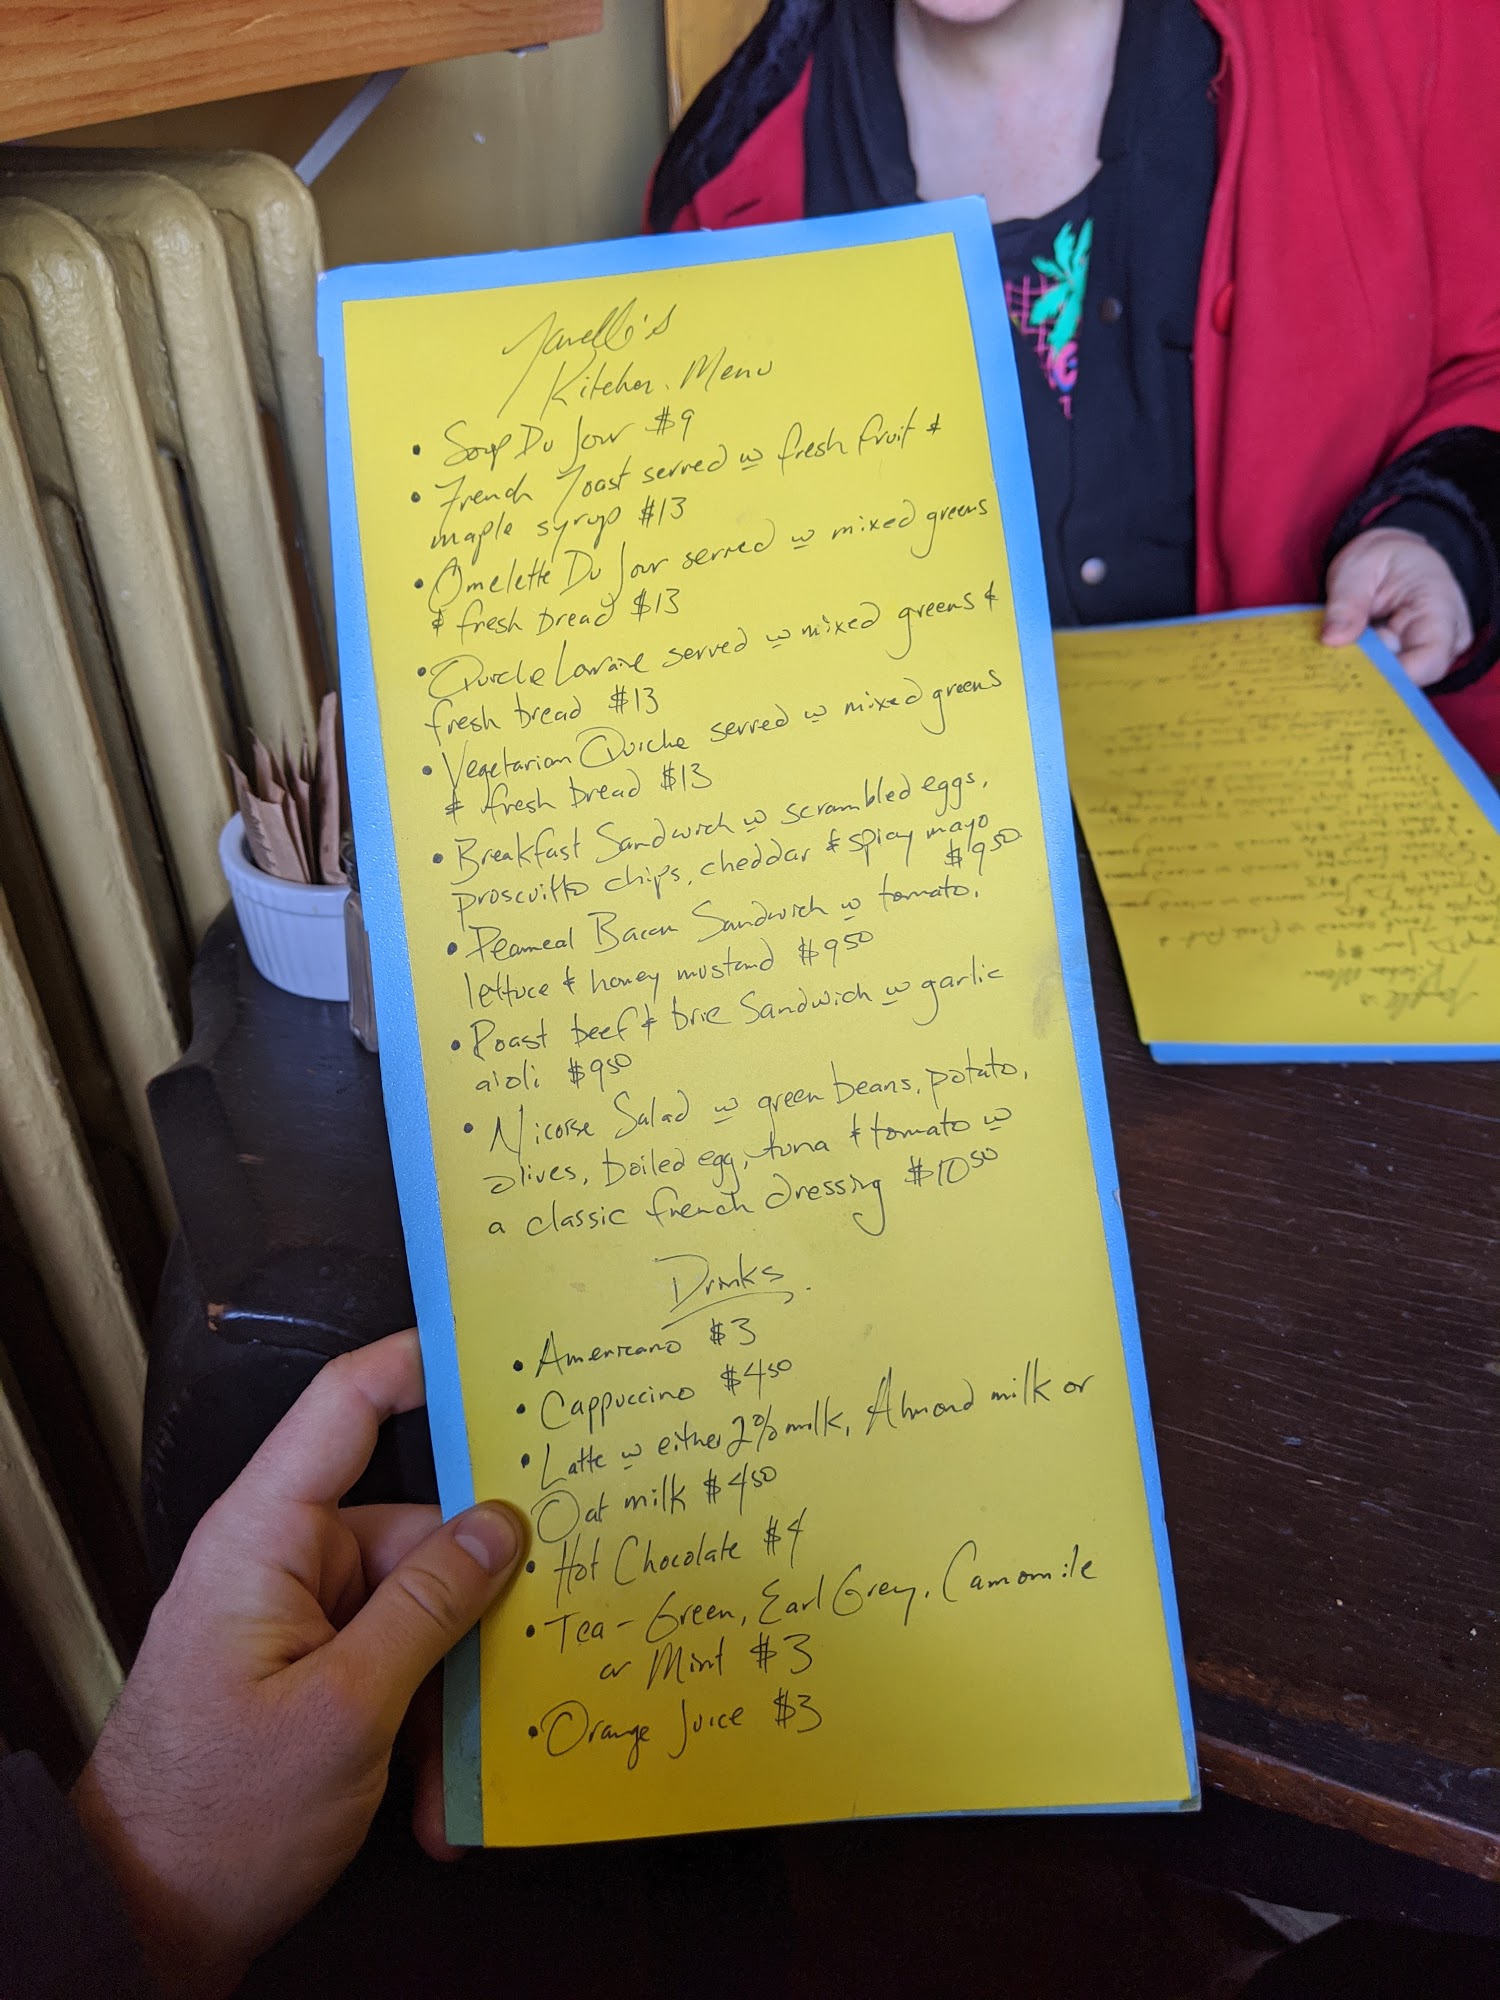 Kitchen Menu
• Soup Du Jour $9
• French Toast served w fresh fruit &
maple syrup $13
• Omelette Du Jour served w mixed greens
& fresh bread $13
• Quiche Lorraine served w mixed greens &
fresh bread $13
• Vegetarian Quiche served w mixed greens
& fresh bread $13
• Breakfast Sandwich w scrambled eggs,
proscuitto chips, cheddar & spicy mayo
$9.50
• Peameal Bacon Sandwich w tomato,
lettuce & honey mustard $9.50
• Roast beef & brie Sandwich w garlic
aioli $9.50
• Nicoise Salad w green beans, potato,
olives, boiled egg, tuna & tomato w
a classic french dressing $10.50
Drinks
• Americano $3
• Cappuccino $4.50
• Latte w either 2% milk, Almond milk or
Oat milk $4.50
• Hot Chocolate $4
• Tea - Green, Earl Grey, Camomile
or Mint $3
• Orange Juice $3